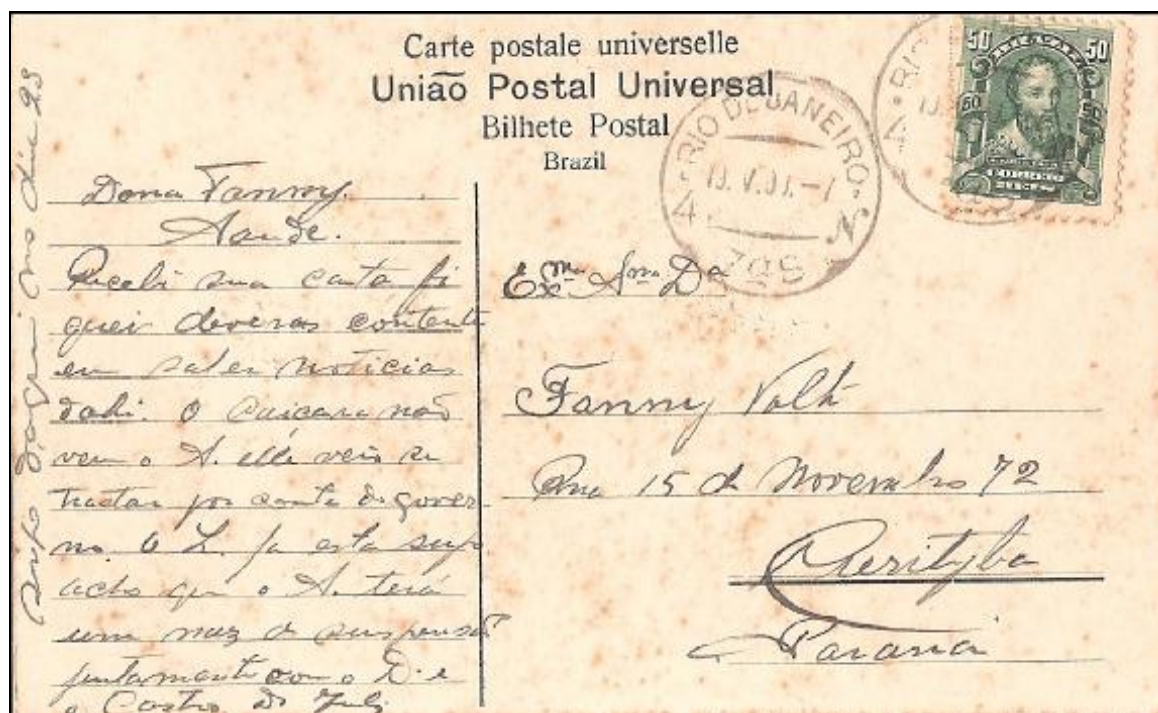 Carte postale universelle
União Postal Universal
Bilhete Postal
Brazil
50 50
RIO DE JANEIRO
4
Dona Fanny.
Saude.
Recebi sua carta fi
quei deveras contente
em saber noticias
dahi. O Caicara não
vem o A. elle veio se
tractar por conta do gover-
no O L. ja esta
acho que o A. terá
um mez de suspensão
juntamente com o D. e
o Castro do
no dia 23
Exma Snra Da
Fanny Volk
Rua 15 de Novembro 72
Curityba
Paraná